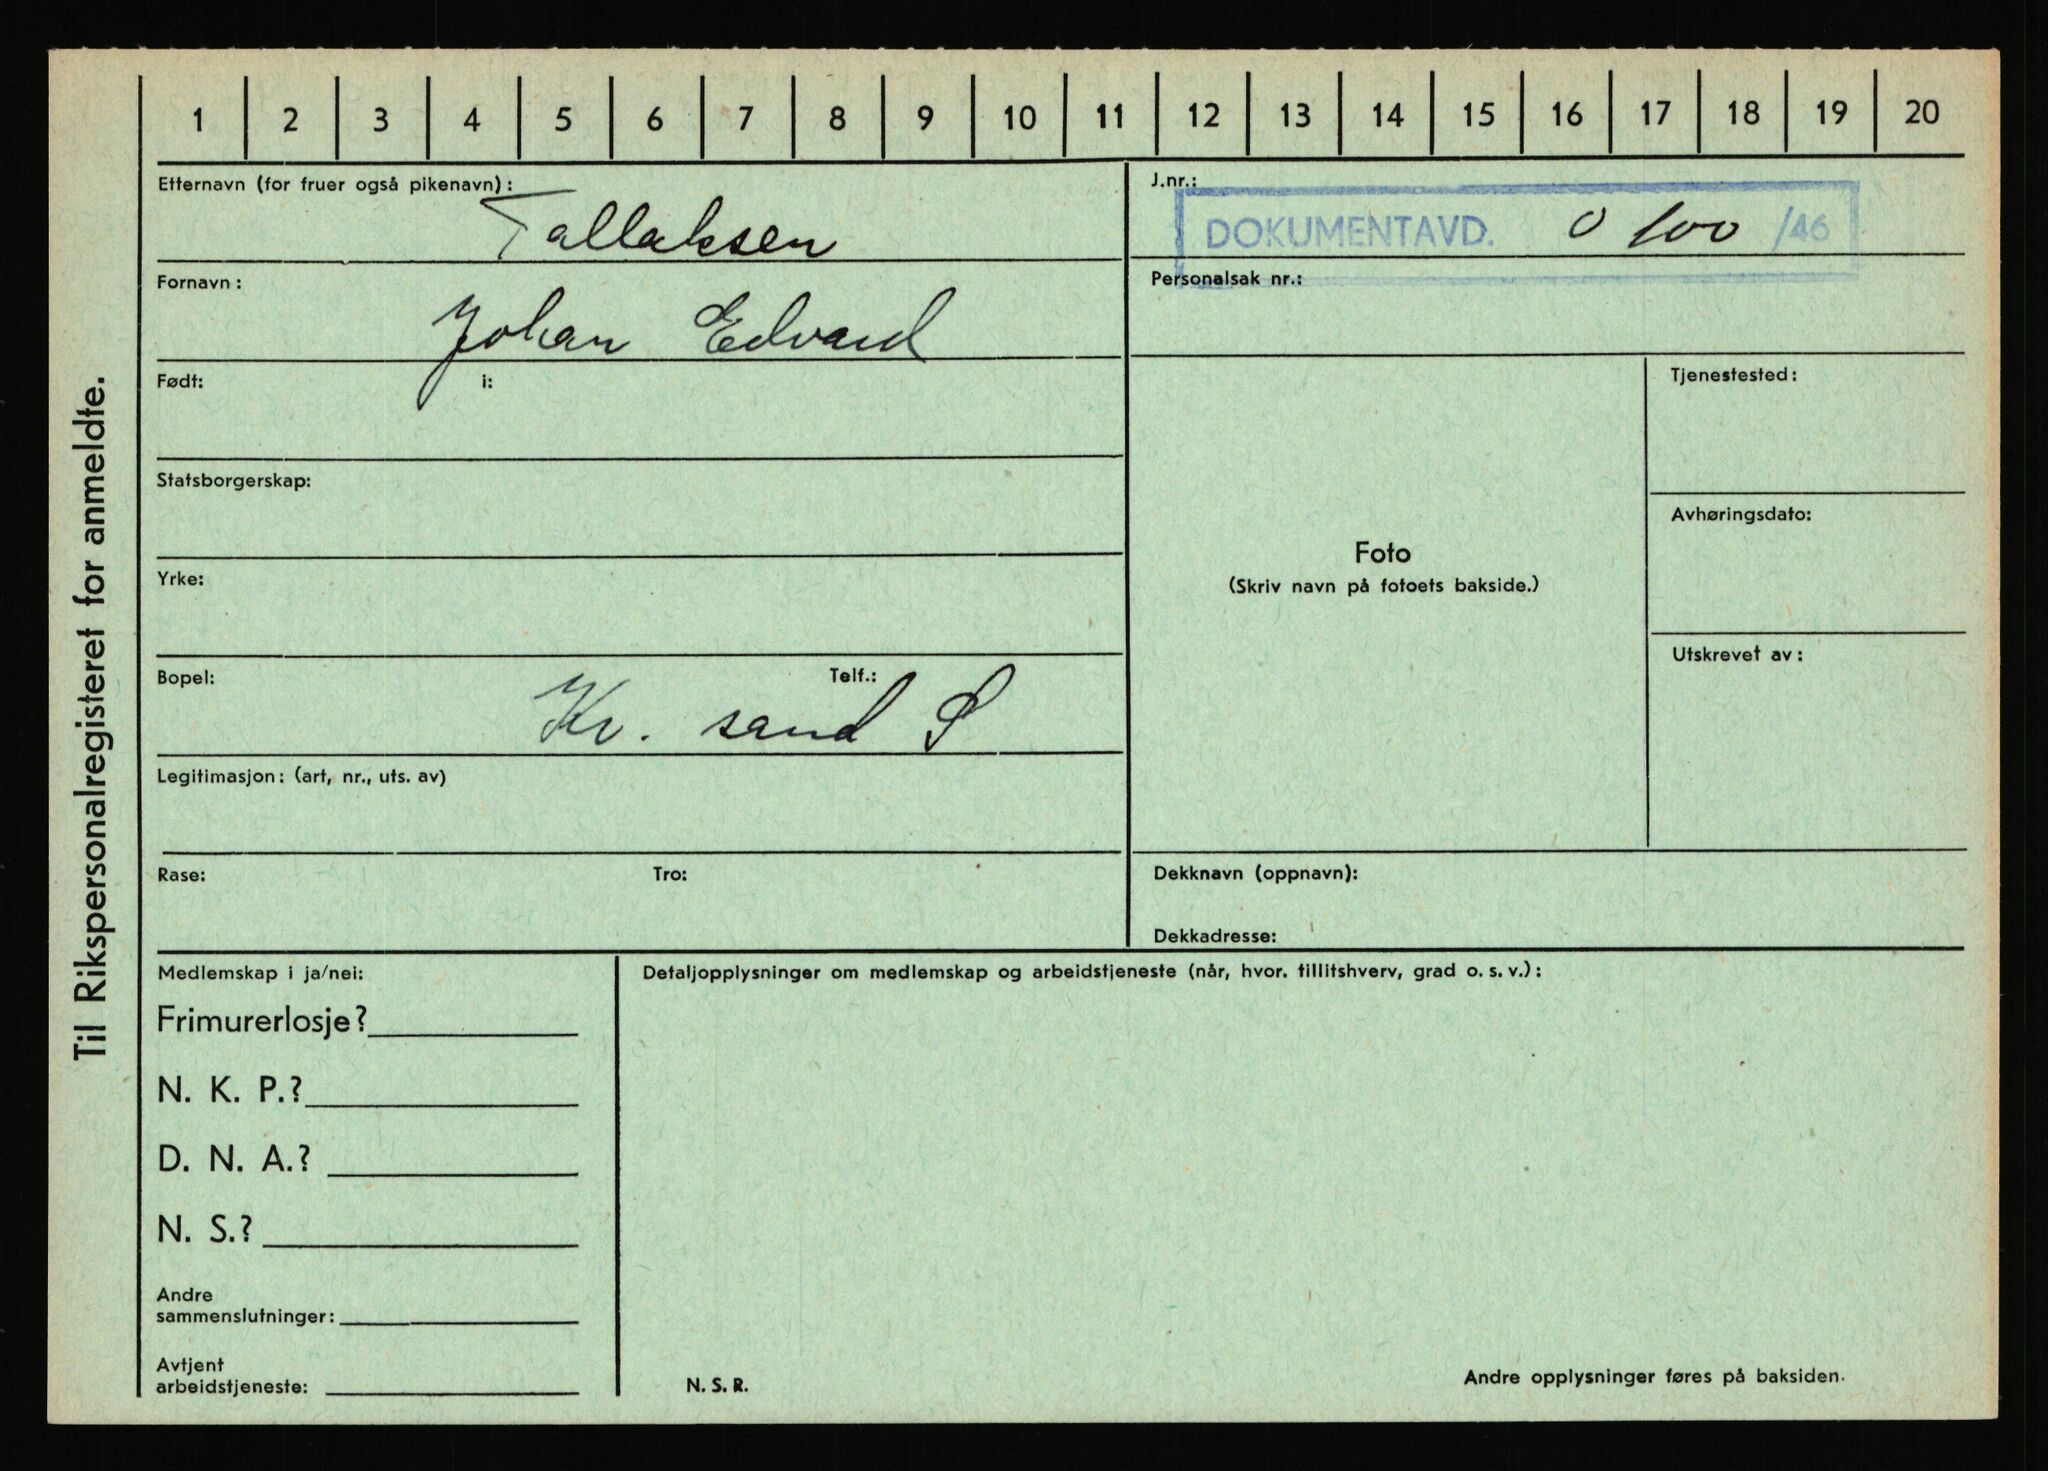 Til Rikspersonalregisteret for anmeldte.
1 2 3 4 5 6 7 8 9 10 11 12 13 14 15 16 17 18 19 20
Etternavn (for fruer også pikenavn):
Tallaksen
Fornavn:
Johan Edvard
Født: i:
Statsborgerskap:
Yrke:
Bopel: Telf.:
Kr. sand S
Legitimasjon: (art, nr., uts. av)
Rase: Tro:
J.nr.:
DOKUMENTAVD. 0 100 /46
Personalsak nr.:
Foto
(Skriv navn på fotoets bakside.)
Tjenestested:
Avhøringsdato:
Utskrevet av:
Dekknavn (oppnavn):
Dekkadresse:
Medlemskap i ja/nei:
Frimurerlosje?
N. K. P.?
D. N. A.?
N. S.?
Andre
sammenslutninger:
Avtjent
arbeidstjeneste:
Detaljopplysninger om medlemskap og arbeidstjeneste (når, hvor. tillitshverv, grad o. s. v.):
N. S. R.
Andre opplysninger føres på baksiden.